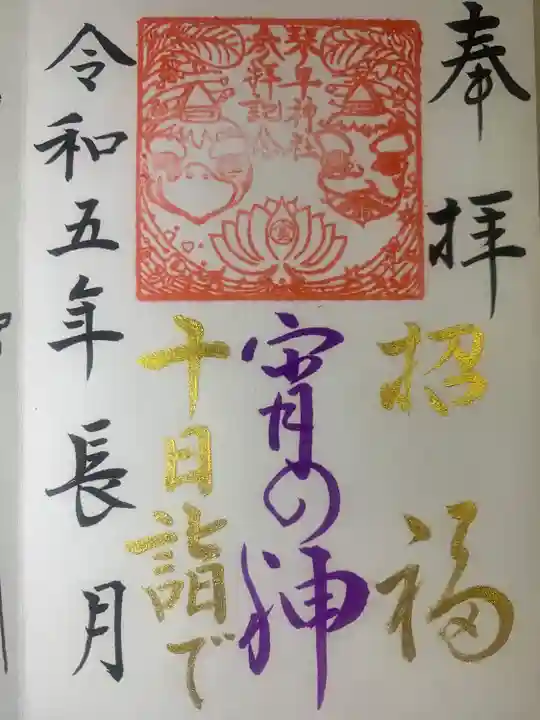 奉拝
招福
宵の神
十日詣で
令和五年長月
琴平神社
参拝記念